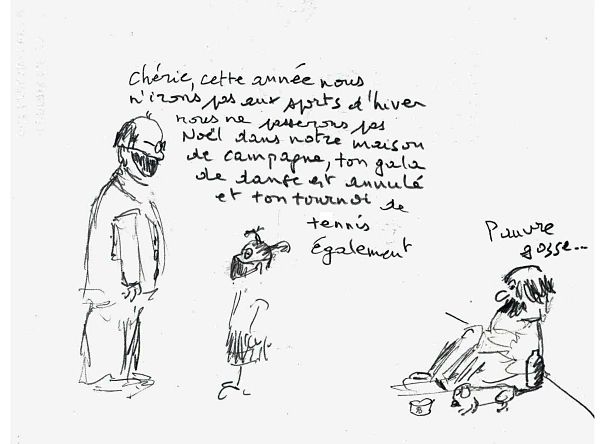 Chérie, cette année nous
n'irons pas aux sports d'hiver
nous ne passerons pas
Noël dans notre maison
de campagne, ton gala
de danse est annulé
et ton tournoi de
tennis
également
Pauvre
gosse...